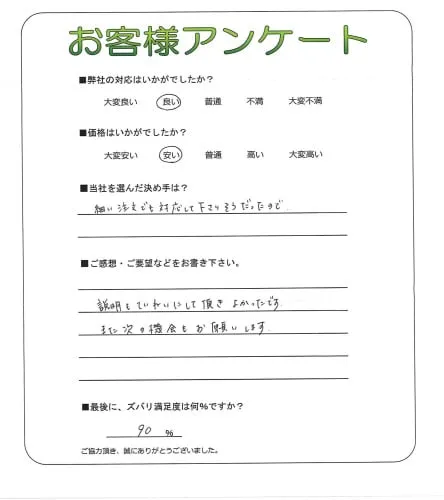 お客様アンケート
■弊社の対応はいかがでしたか?
大変良い 良い 普通 不満 大変不満
■価格はいかがでしたか?
大変安い 安い 普通 高い 大変高い
■当社を選んだ決め手は?
細い注文でも対応して下さりそうだったので
■ご感想・ご要望などをお書き下さい。
説明もていねいにして頂きよかったです。
また次の機会もお願いします
■最後に、ズバリ満足度は何%ですか?
90 %
ご協力頂き、誠にありがとうございました。